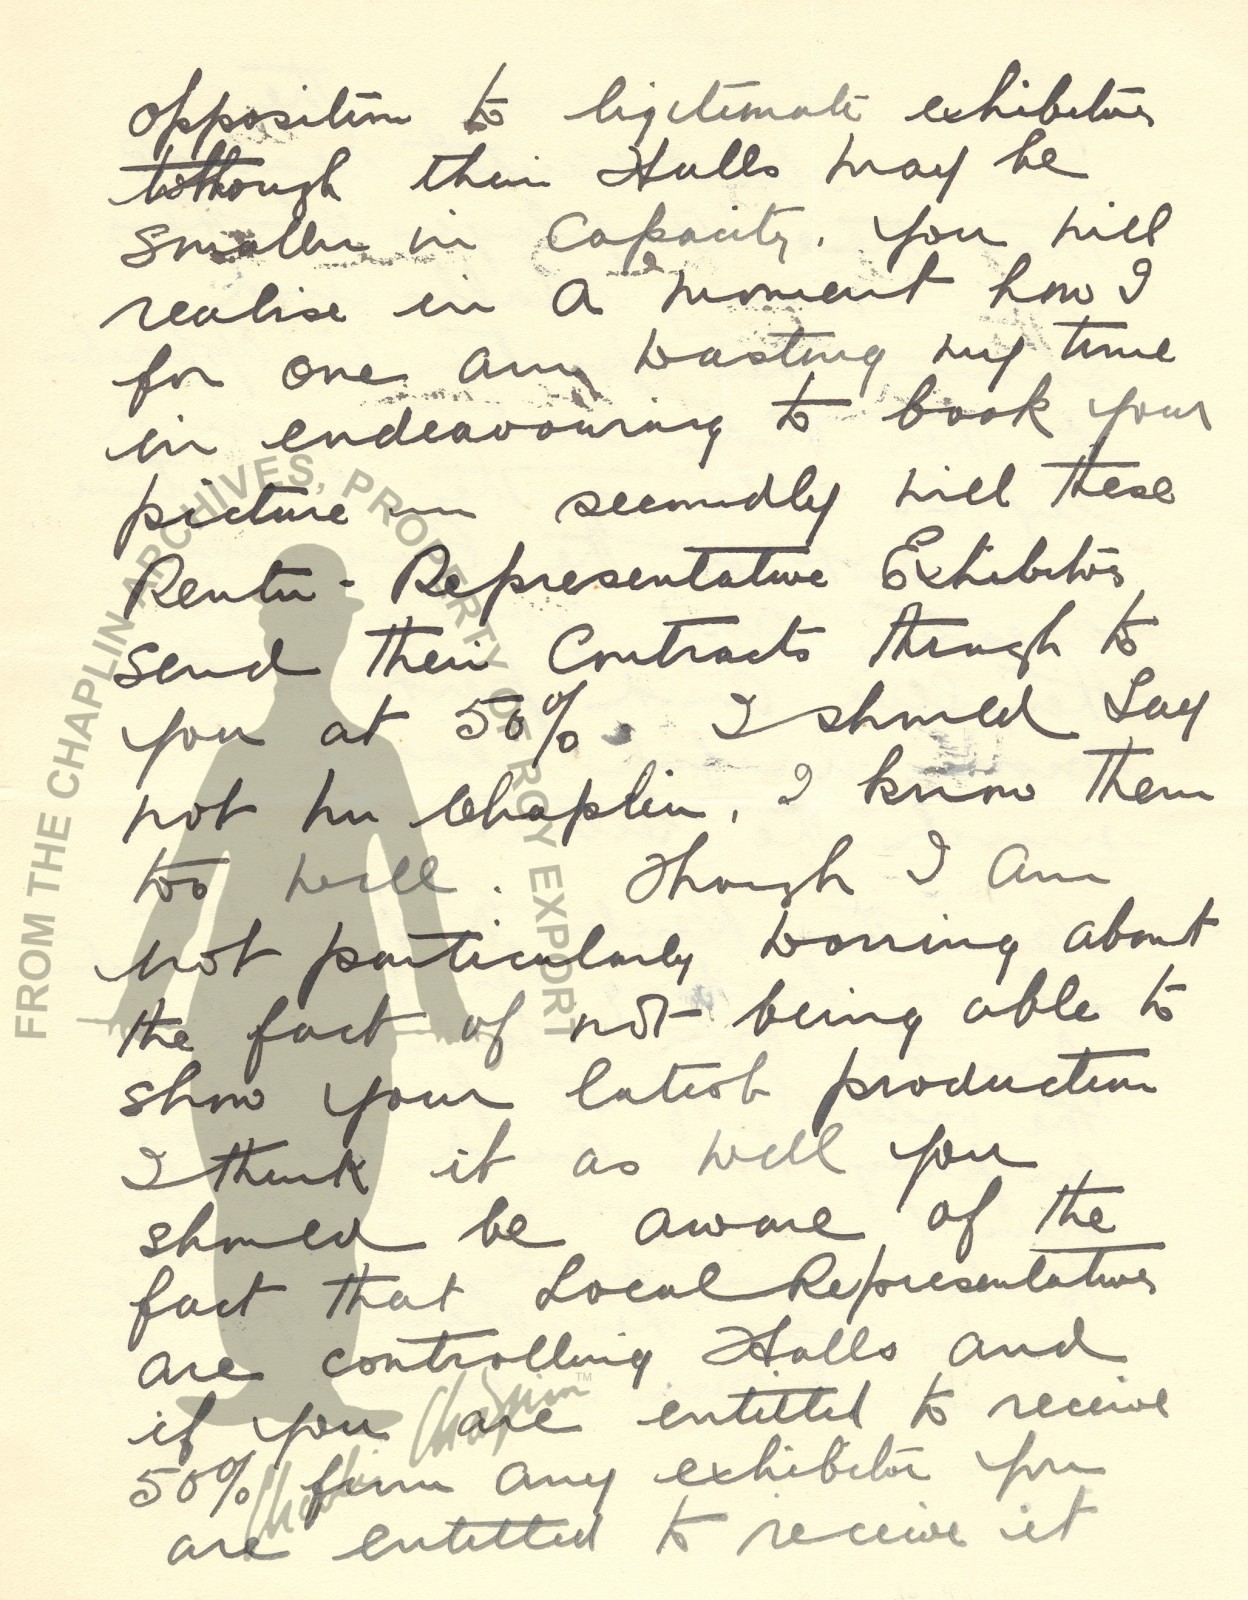 opposition to ligitimate exhibitors
although their Halls may be
smaller in Capacity. You will
realise in a moment how I
for one am wasting my time
in endeavouring to book your
picture secondly will these
Renter - Representative Exhibitors
send their Contracts through to
you at 50%. I should say
not Mr Chaplin, I know them
too well. Though I am
not particularly worring about
the fact of not being able to
show your latest production
I think it as well you
should be aware of the
fact that Local Representatives
are controlling Halls and
if you are entitled to receive
50% from any exhibitor you
are entitled to receive it
FROM THE CHAPLIN ARCHIVES, PROPERTY OF ROY EXPORT
Charlie Chaplin™